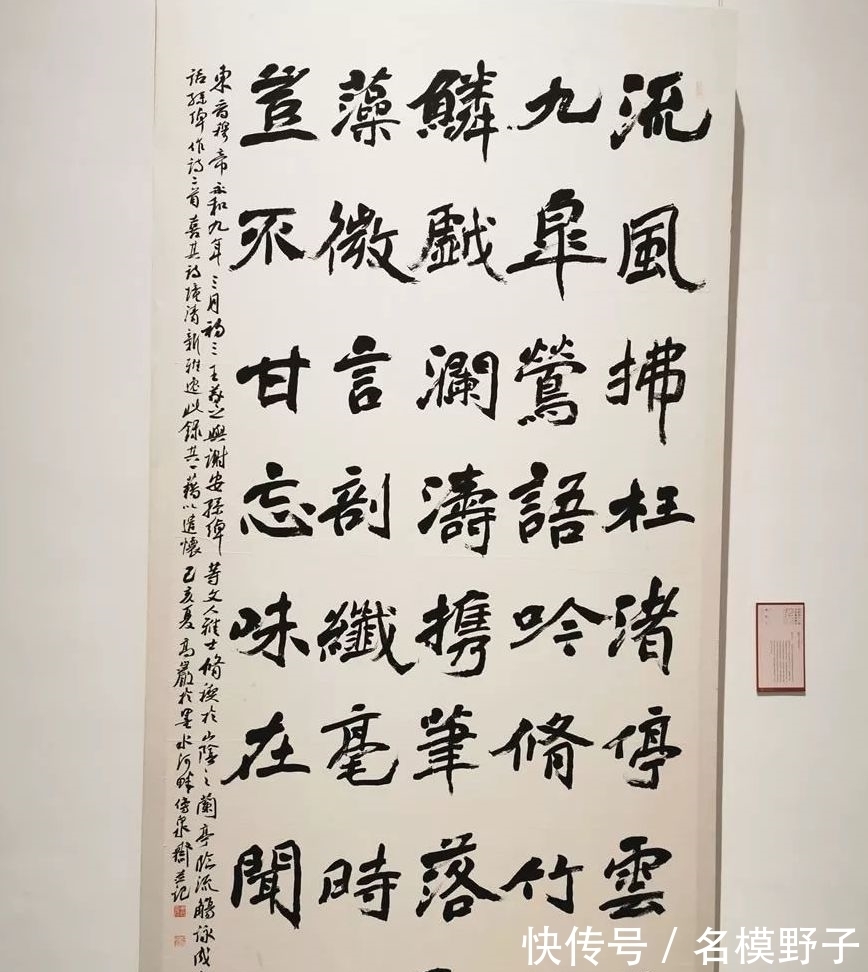 流風拂枉渚停雲
九皐鶯語吟脩竹
鱗戯瀾濤携筆落
藻微言剖纖毫時
豈不甘忘味在聞
東晉穆帝永和九年三月初三王羲之與謝安孫綽等文人雅士脩禊於山陰之蘭亭臨流觴詠成
孫綽作詩二首喜其詩境清新雅逸此録其一藉以遣懷己亥夏高嚴於墨水河畔傳泉齋並記
快传号 / 名模野子